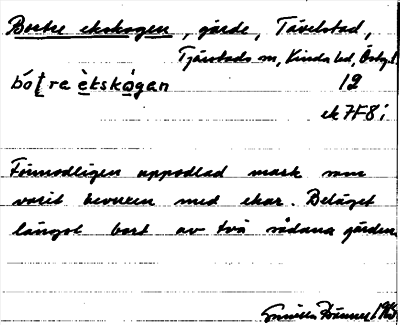 Bortre ekskogen, gärde, Tävelstad,
Tjärstads sn, Kinda hd, Östg.
bó̄ṭre èkskógan 12
ek 7F8i
Förmodligen uppodlad mark som
varit bevuxen med ekar. Beläget
längst bort av två sådana gärden
Gunilla